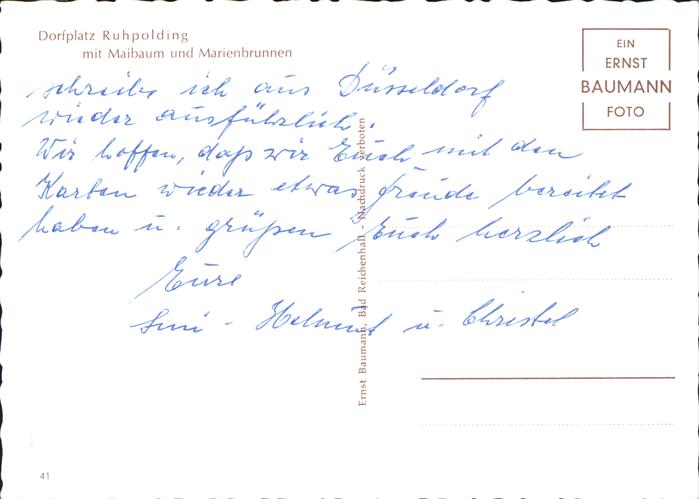 Dorfplatz Ruhpolding
mit Maibaum und Marienbrunnen
EIN
ERNST
BAUMANN
FOTO
schreibe ich aus Düsseldorf
wieder ausführlich.
Wir hoffen, daß wir Euch mit den
Karten wieder etwas Freude bereitet
haben u. grüßen Euch herzlich
Eure
Helmut u. Christel
Ernst Baumann, Bad Reichenhall - Nachdruck verboten
41